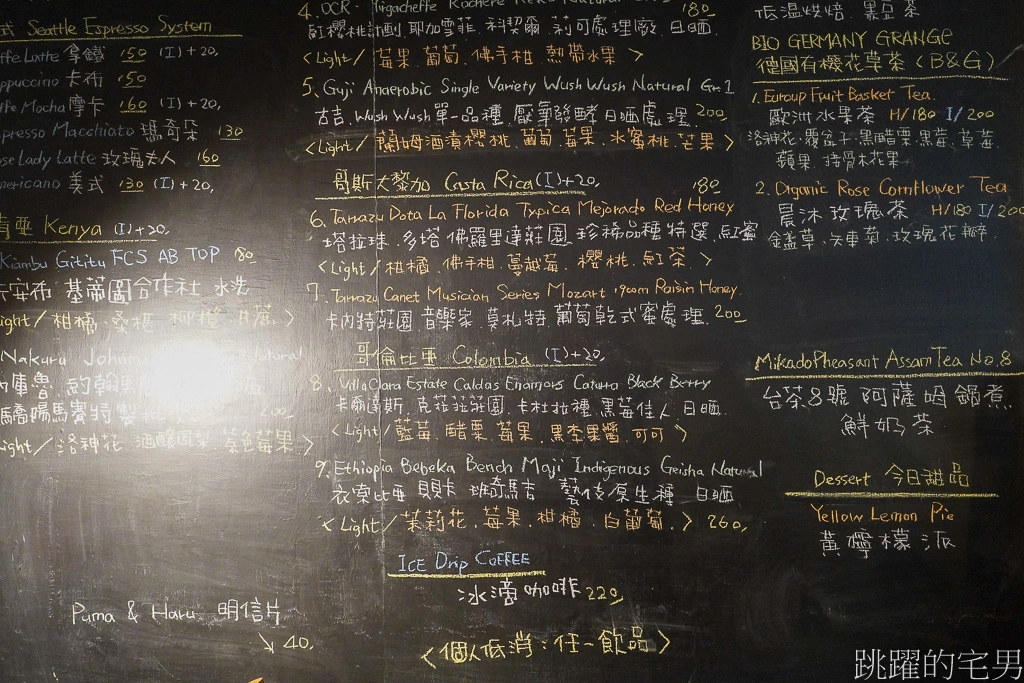 式 Seattle Espresso System
ffe Latte 拿鐵 150 (I)+20,
ppuccino 卡布 150
ffe Mocha 摩卡 160 (I)+20,
presso Macchiato 瑪奇朵 130
ose Lady Latte 玫瑰夫人 160
mericano 美式 130 (I)+20,
肯亞 Kenya (I)+20,
Kiambu Gititu FCS AB TOP 80
安布 基蒂圖合作社 水洗
ight / 柑橘、桑椹
Nakuru
庫魯 約翰
製 200
ight / 洛神花 莓果 >
4. DCR- Yirgacheffe Kochere Natural 180
紅櫻桃計劃 耶加雪菲 科契爾 莉可處理廠 日晒
<Light / 莓果 葡萄 佛手柑 熱帶水果 >
5. Guji Anaerobic Single Variety Wush Wush Natural Gr.1
古吉 Wush Wush 單一品種 厭氧發酵 日晒處理 200
<Light / 蘭姆酒漬櫻桃 葡萄 莓果 水蜜桃 芒果 >
哥斯大黎加 Costa Rica (I)+20, 180
6. Tarrazu Dota La Florida Typica Mejorado Red Honey
塔拉珠 多塔 佛羅里達莊園 珍稀品種特選 紅蜜
<Light / 柑橘 佛手柑 蔓越莓 櫻桃 紅茶 >
7. Tarrazu Canet Musician Series Mozart 1900m Raisin Honey
卡內特莊園 音樂家 莫札特 葡萄乾式蜜處理 200
哥倫比亞 Colombia (I)+20,
8 Villa Clara Estate Caldas Enamors Caturra Black Berry
卡爾達斯 克菈菈莊園 卡杜拉種 黑莓佳人 日晒
<Light / 藍莓 醋栗 莓果 黑李果醬 可可 >
9. Ethiopia Bebeka Bench Maji Indigenous Geisha Natural
衣索比亞 貝貝卡 班奇馬吉 藝伎原生種 日晒
<Light / 茉莉花 莓果 柑橘 白葡萄 > 260,
ICE Drip COFFEE
冰滴咖啡 220,
<個人低消:任一飲品>
Puma & Haru 明信片
↘ 40,
低温烘焙 黑豆茶
BIO GERMANY GRANGE
德國有機花草茶 (B&G)
1. Europ Fruit Basket Tea
歐洲水果茶 H/180 I/200
洛神花 覆盆子 黑醋栗 黑莓 草莓
蘋果 接骨木花果
2. Organic Rose Cornflower Tea
晨沐玫瑰茶 H/180 I/200
金盞草 矢車菊 玫瑰花瓣
Mikado Pheasant Assam Tea No.8
台茶8號 阿薩姆 鍋煮
鮮奶茶
Dessert 今日甜品
Yellow Lemon Pie
黃檸檬派
跳躍的宅男